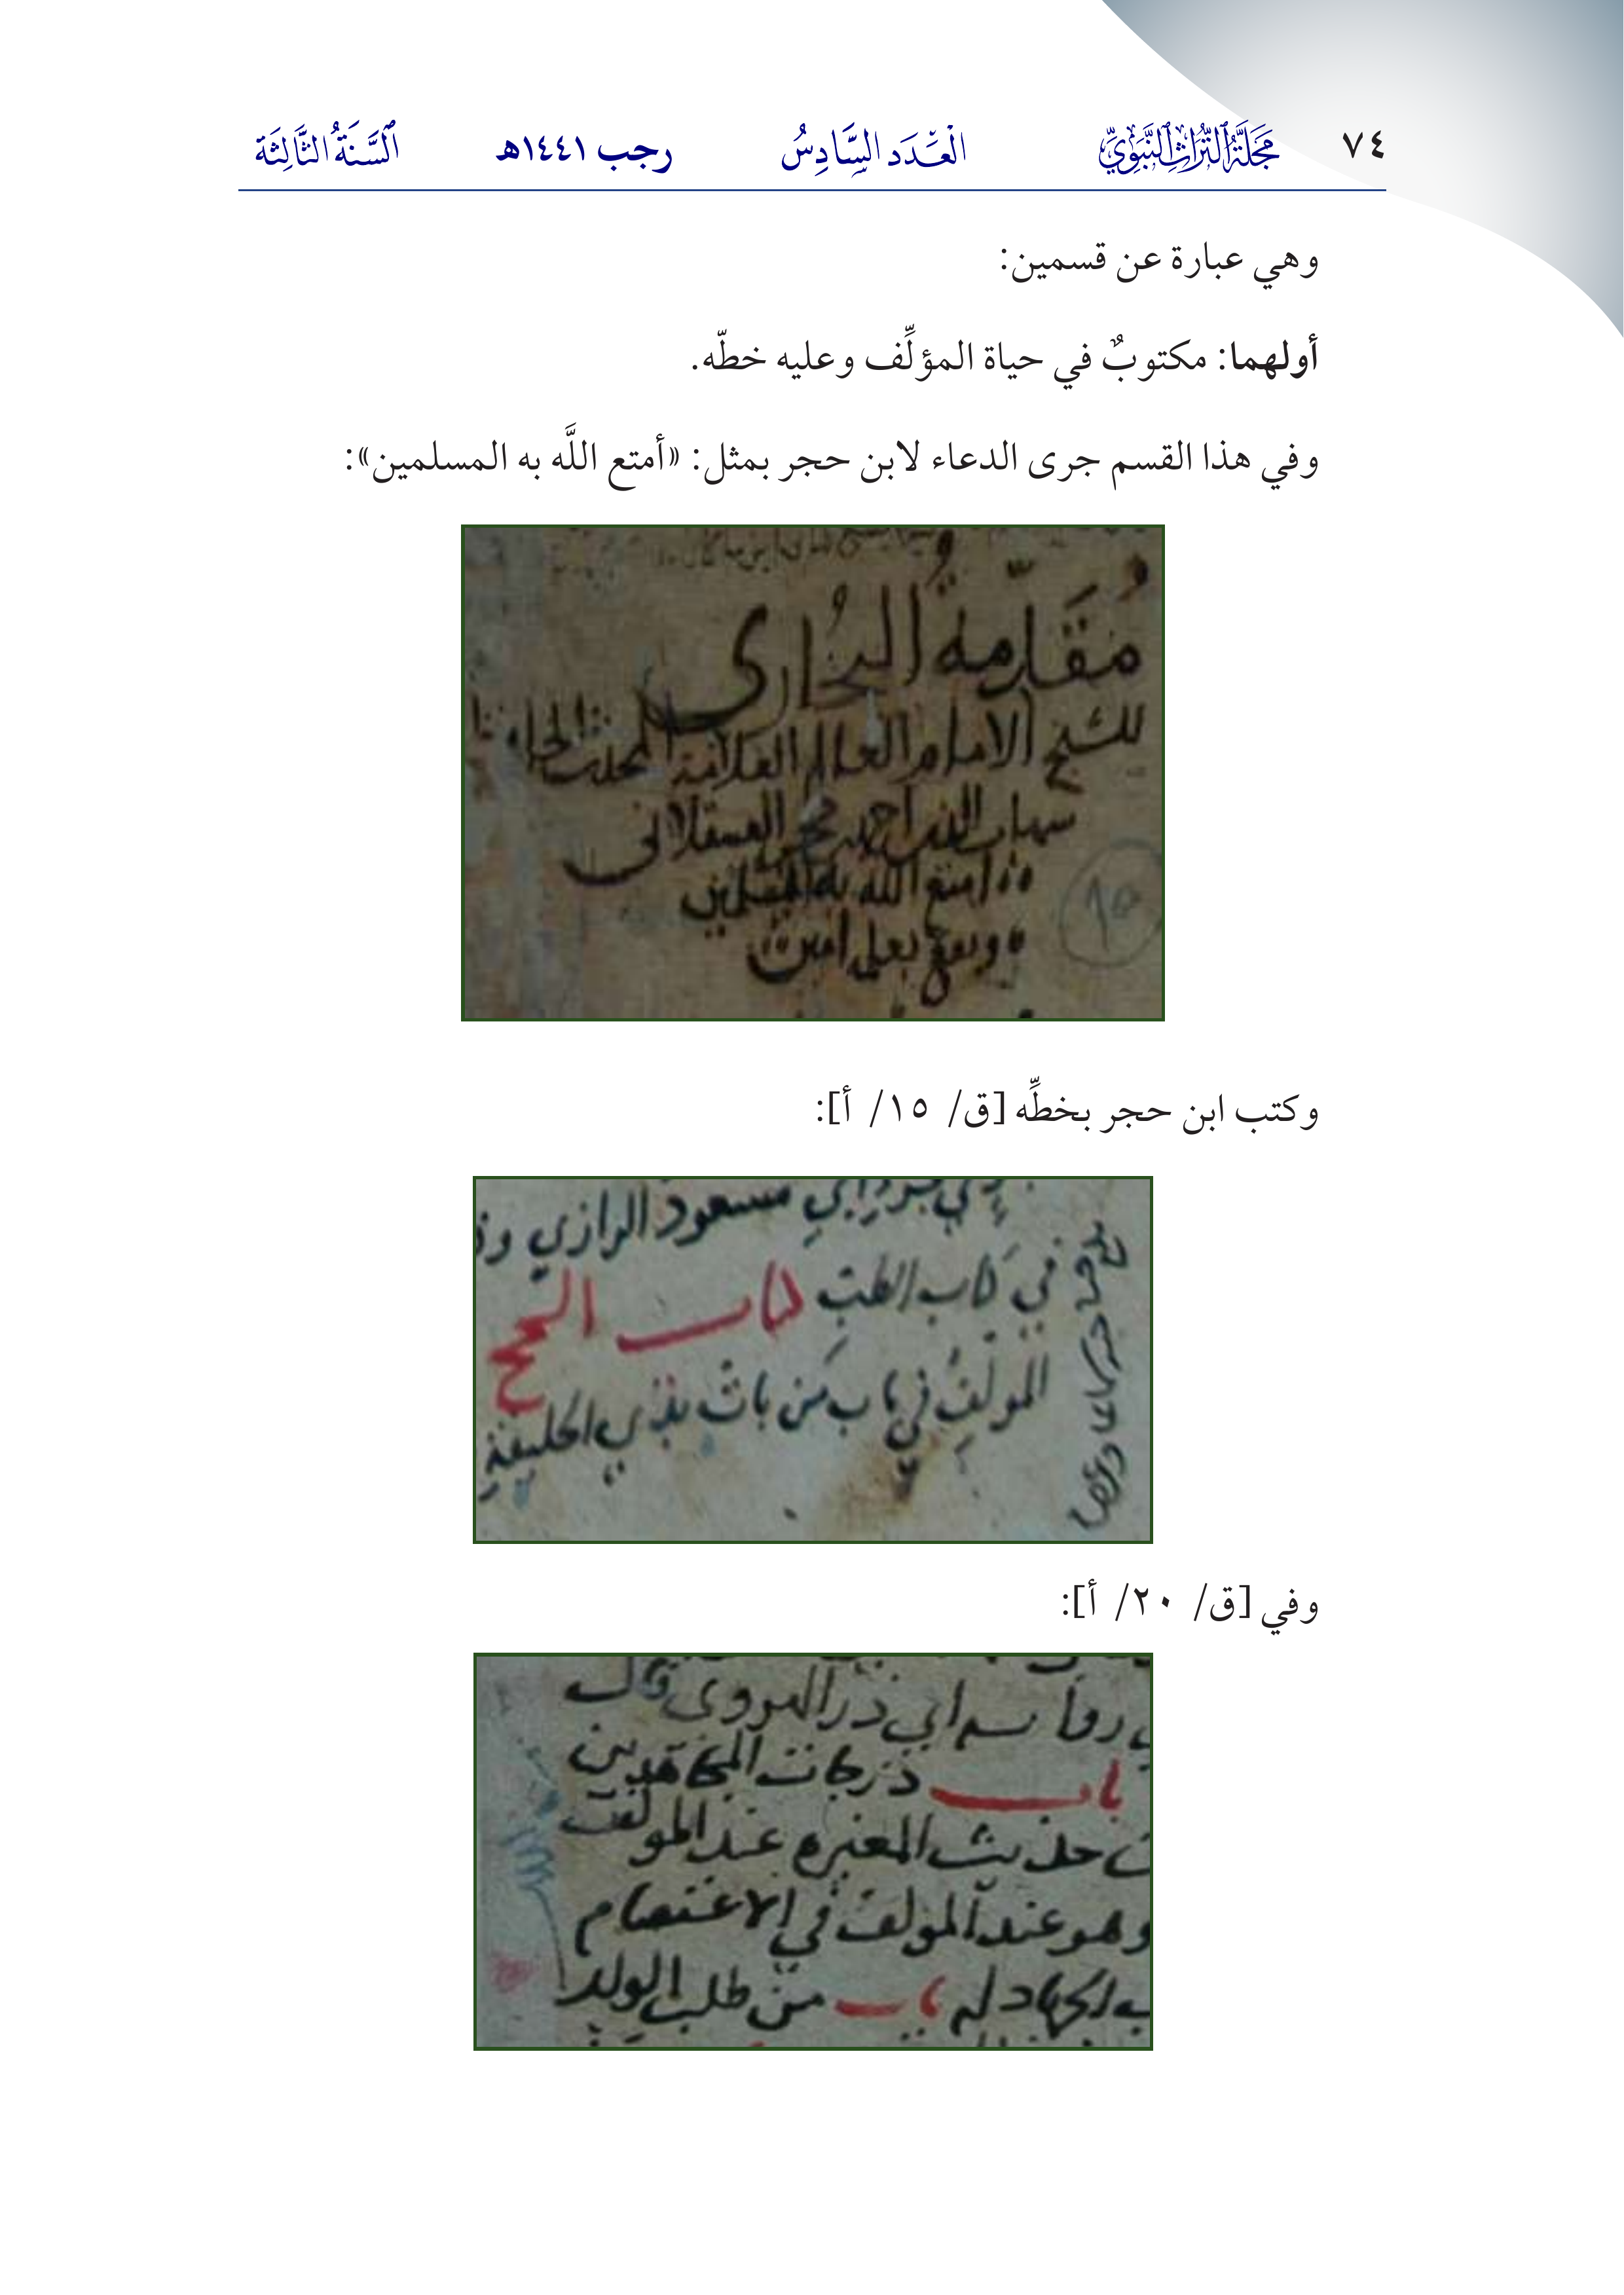 ٧٤ مَجَلَّةُ التُّرَاثِ النَّبَوِيِّ الْعَدَد السَّادِسُ رجب ١٤٤١هـ السَّنَةُ الثَّالِثَة
وهي عبارة عن قسمين:
أولهما: مكتوبٌ في حياة المؤلِّف وعليه خطّه.
وفي هذا القسم جرى الدعاء لابن حجر بمثل: «أمتع اللَّه به المسلمين»:
مُقَدِّمةُ البُخارى
للشيخ الامام العالم العلامة
شهاب الدين احمد بن حجر العسقلانى
امتع الله به المسلمين
امين
وكتب ابن حجر بخطِّه [ق/ ١٥/ أ]:
مسعود الرازي
في كتاب الطب كتاب الحج
المولف في باب من بات بذي الحليفة
وفي [ق/ ٢٠/ أ]:
ابي ذر الهروي قال
باب درجات المجاهدين
حديث المغيره عند المولف
وهو عند المولف في الاعتصام
الجهاد له باب من طلب الولد